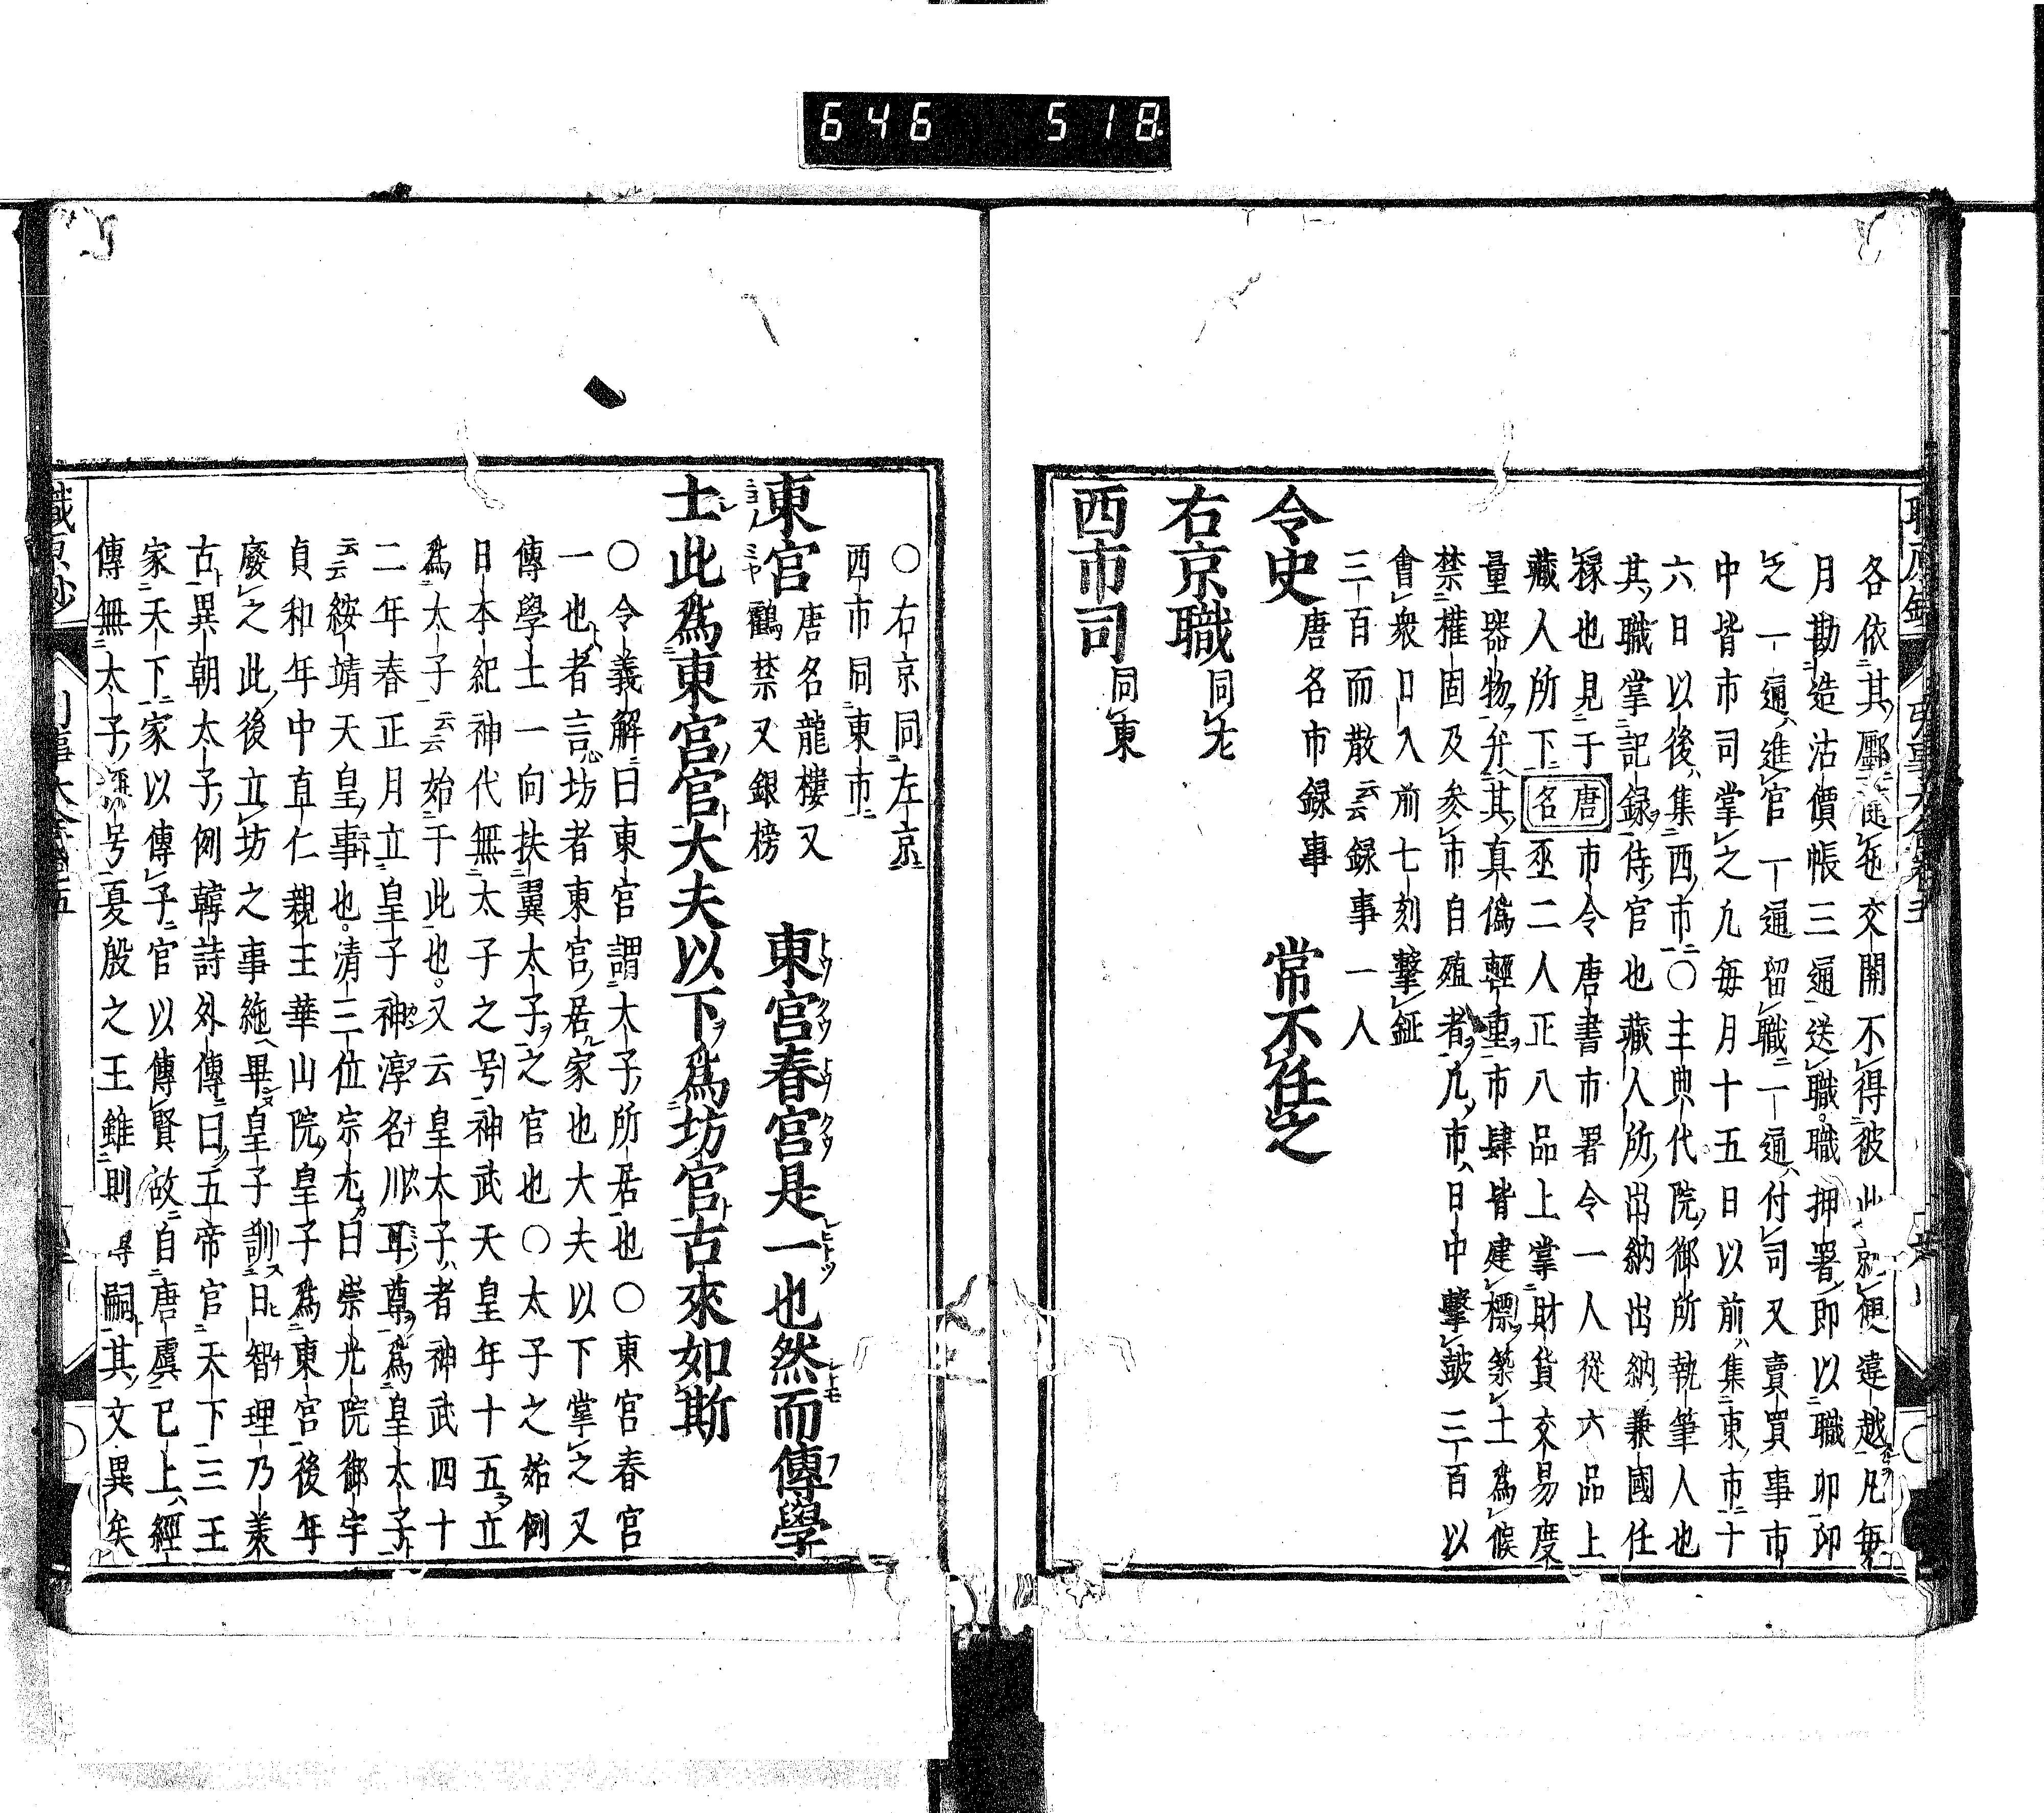 646 518.
各依其廛莚也交開不得彼此就便違越凡毎
月勘造沽價帳三通送職職押署即以職卯印
之一通進官一通留職一通付司又賣買事市
中皆市司掌之凢毎月十五日以前集東市十
六日以後集西市〇主典代院御所執筆人也
其職掌記録侍官也藏人所出納出納兼國任
稼也見于唐市令唐書市署令一人從六品上
藏人所下名丞二人正八品上掌財貨交易度
量器物弁其真偽輕重市肆皆建標築土為候
禁榷固及参市自殖者凢市日中擊皷三百以
會衆日入前七刻擊鉦
三百而散云云録事一人
令史 唐名市録事 常不任之
右京職 同左
西市司 同東
〇右京同左京
西市同東市
東宮 唐名龍樓又鶴禁又銀榜 東宮春宮是一也然而傳學
士此爲東宮官大夫以下爲坊官古來如斯
〇令義解曰東宮謂太子所居也〇東宮春宮
一也者言坊者東宮居家也大夫以下掌之又
傳學士一向扶翼太子之官也〇太子之始例
日本紀神代無太子之号神武天皇年十五立
爲太子云云始于此也又云皇太子者神武四十
二年春正月立皇子神渟名川耳尊爲皇太子
云云綏靖天皇事也清三位宗尤曰崇光院御宇
貞和年中直仁親王華山院皇子爲東宮後年
廢之此後立坊之事絶畢皇子訓日智理乃美
古異朝太子例韓詩外傳曰五帝官天下三王
家天下家以傳子官以傳賢故自唐虞已上經
傳無太子号夏殷之王雖則傳嗣其文異矣